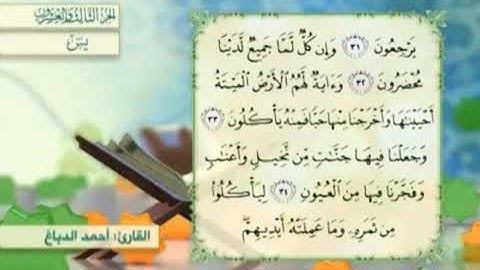 الجزء الثالث والعشرون
يس
يَرْجِعُونَ ٣١ وَإِن كُلٌّ لَّمَّا جَمِيعٌ لَّدَيْنَا
مُحْضَرُونَ ٣٢ وَءَايَةٌ لَّهُمُ ٱلْأَرْضُ ٱلْمَيْتَةُ
أَحْيَيْنَٰهَا وَأَخْرَجْنَا مِنْهَا حَبًّا فَمِنْهُ يَأْكُلُونَ ٣٣
وَجَعَلْنَا فِيهَا جَنَّٰتٍ مِّن نَّخِيلٍ وَأَعْنَٰبٍ
وَفَجَّرْنَا فِيهَا مِنَ ٱلْعُيُونِ ٣٤ لِيَأْكُلُوا۟
مِن ثَمَرِهِۦ وَمَا عَمِلَتْهُ أَيْدِيهِمْ ۖ
القارئ: أحمد الدباغ